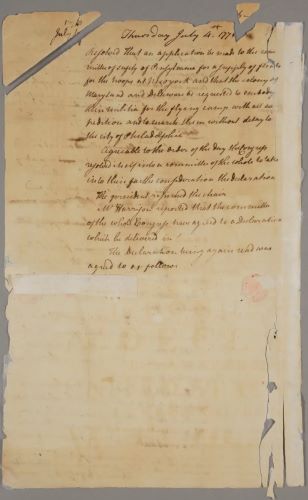 Thursday July 4th. 177
July
Resolved that an application be made to the com
mittee of safety of Pensylvania for a supply of flints
for the troops at N. york and that the colony of
Maryland and Delaware be requested to embody
their militia for the flying camp with all ex
pedition and to march them without delay to
the city of Philadelphia
Agreeable to the order of the day the Congress
resolved itself into a committee of the whole to take
into their farther consideration the declaration
The president resumed the chair
Mr Harrison reported that the committee
of the whole Congress have agreed to a Declaration
which he delivered in
The Declaration being again read was
agreed to as follows